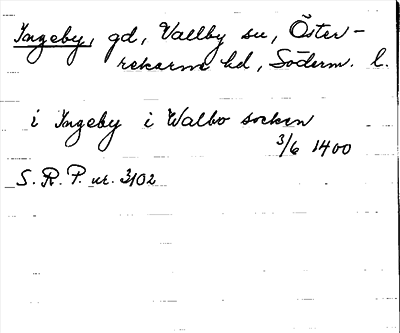 Ingeby, gd, Vallby sn, Öster-
rekarne hd, Söderm. l.
i Ingeby i Walbo socken
3/6 1400
S. R. P. nr. 3102